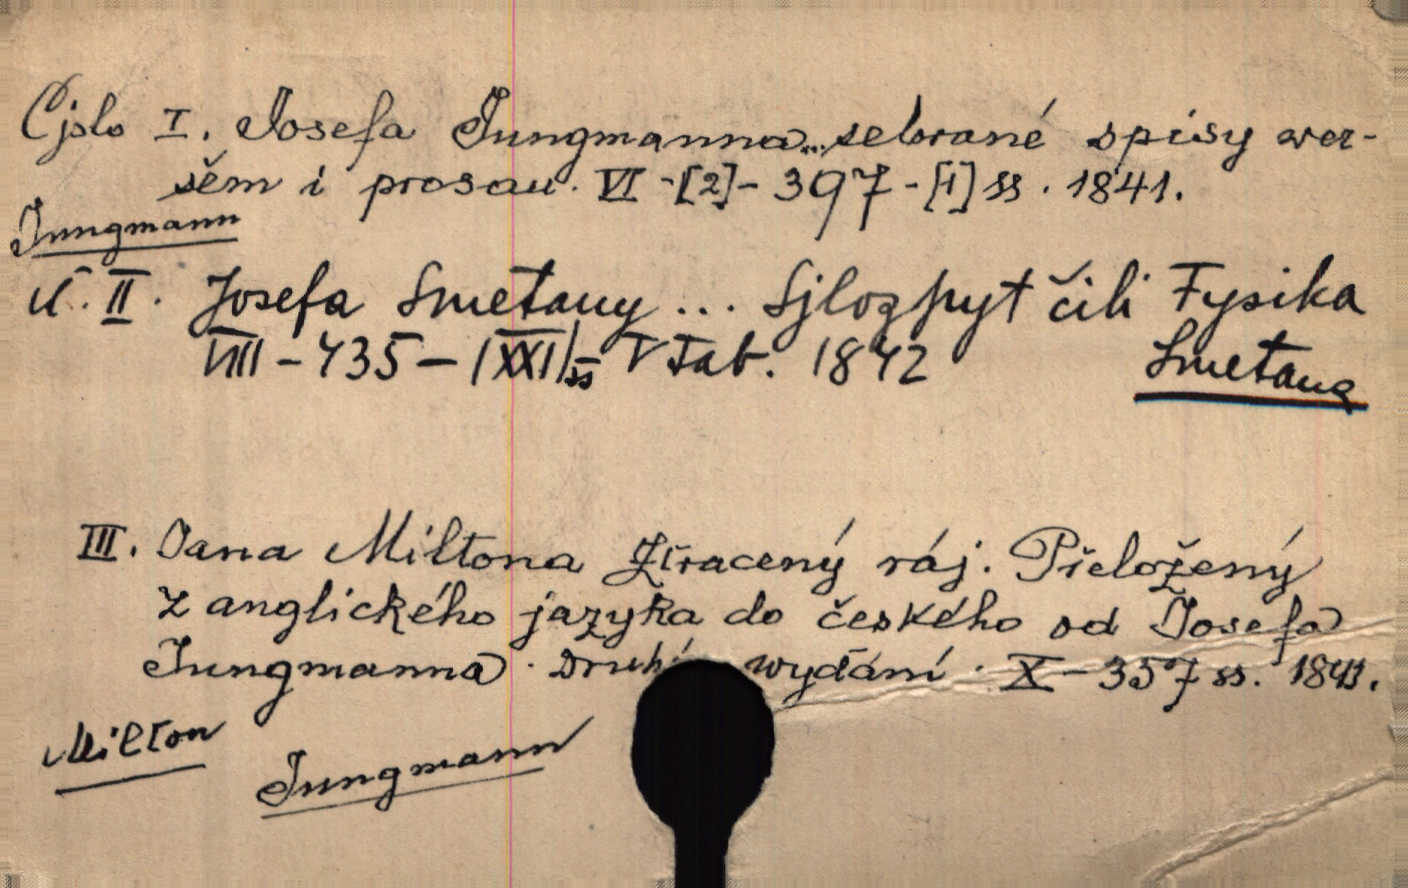 Čjslo I. Josefa Jungmanna... sebrané spisy wer-
šem i prosau. VI-[2]-397-[1] ss. 1841.
Jungmann
Č. II. Josefa Smetany ... Sjlozpyt čili Fysika
VIII-435-|XXI| ss V Tab. 1842
Smetana
III. Jana Miltona Ztracený ráj. Přeložený
z anglického jazyka do českého od Josefa
Jungmanna. Druhé wydání. X-357 ss. 1843.
Milton
Jungmann